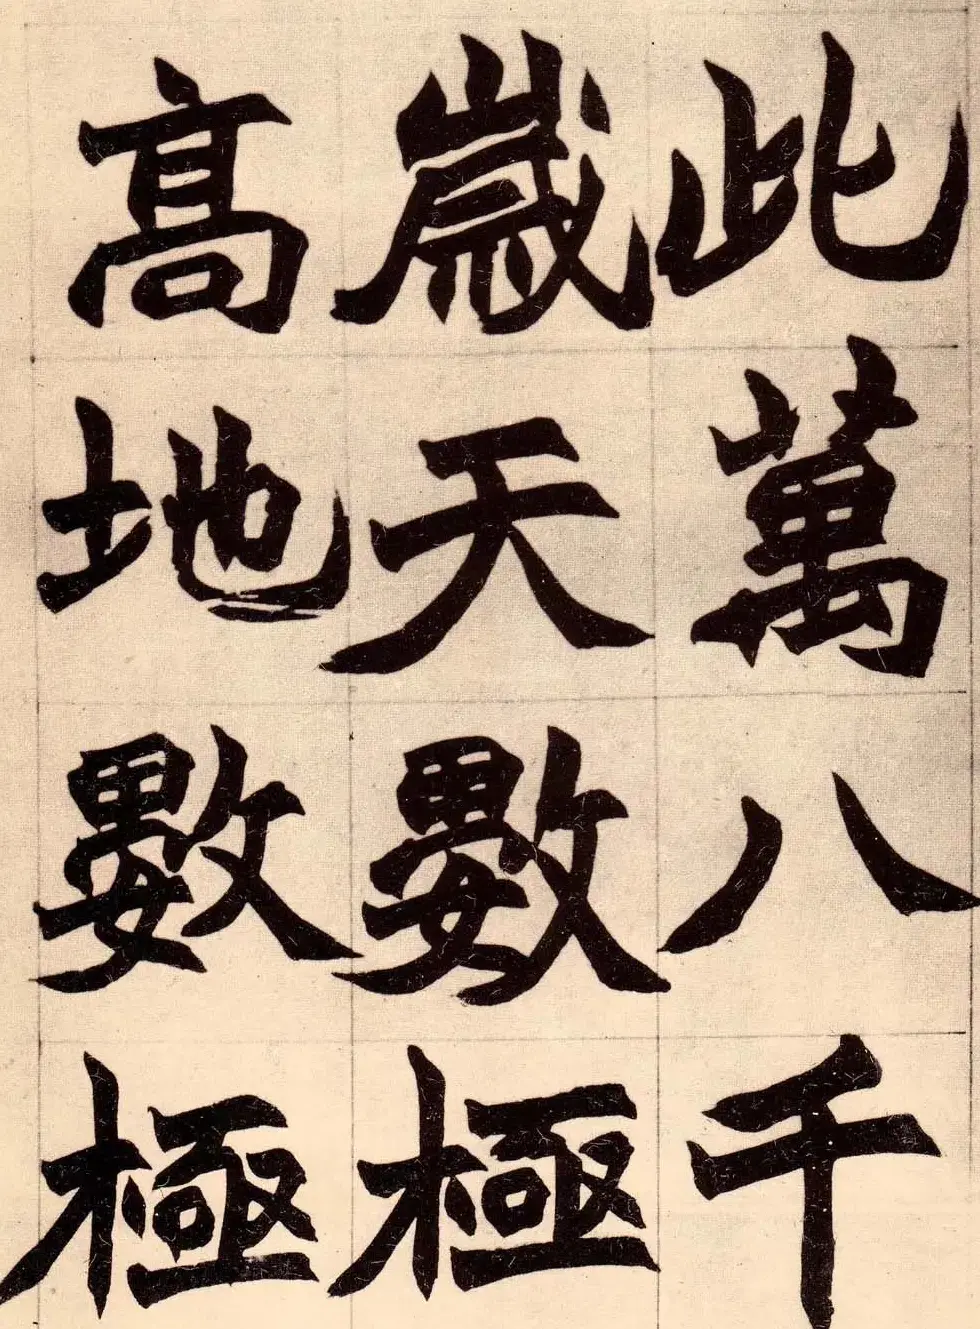 此萬八千
歲天數極
高地數極